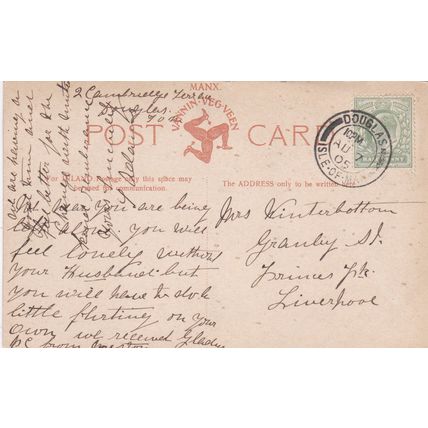 2 Cambridge Terrace
Douglas
I O M
MANX.
VANNIN VEG VEEN
POST CARD
DOUGLAS
10 PM
AU 7
05
ISLE-OF-MAN
For INLAND Postage only this space may
be used for communication.
The ADDRESS only to be written here.
Dear you are being
alone you will
feel lonely without
your Husband but
you will have to do a
little flirting on your
own we received Gladys
PC from
Mrs Winterbottom
Granby St
Princes Pk
Liverpool
are having a
time and
feel better for the
change